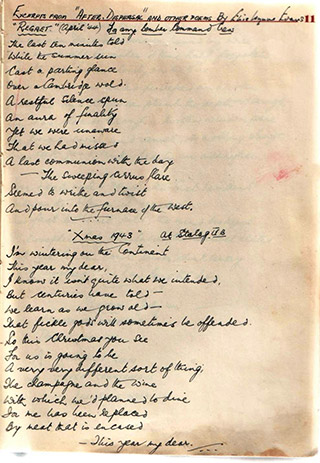 Excerpts from "After Dispersal" and other poems By Eric Lyman Evans 11
"Regret" (April '44) To any bomber Command crew
The last ten minutes told
While the summer sun
Cast a parting glance
Over a Cambridge wold.
A restful silence spun
An aura of finality
Yet we were unaware
That we had missed
A last communion with the day
— The sweeping cirrus flare
Seemed to writhe and twist
And pour into the furnace of the west.
"Xmas 1943" at Stalag IVB
I'm wintering on the Continent
This year my dear,
I know it isn't quite what we intended,
But centuries have told —
We learn as we grow old —
That fickle gods will sometimes be offended.
So this Christmas you see
For us is going to be
A very very different sort of thing;
The champagne and the wine
With which we'd planned to dine
For me has been replaced
By meat that is encased
— This year my dear.